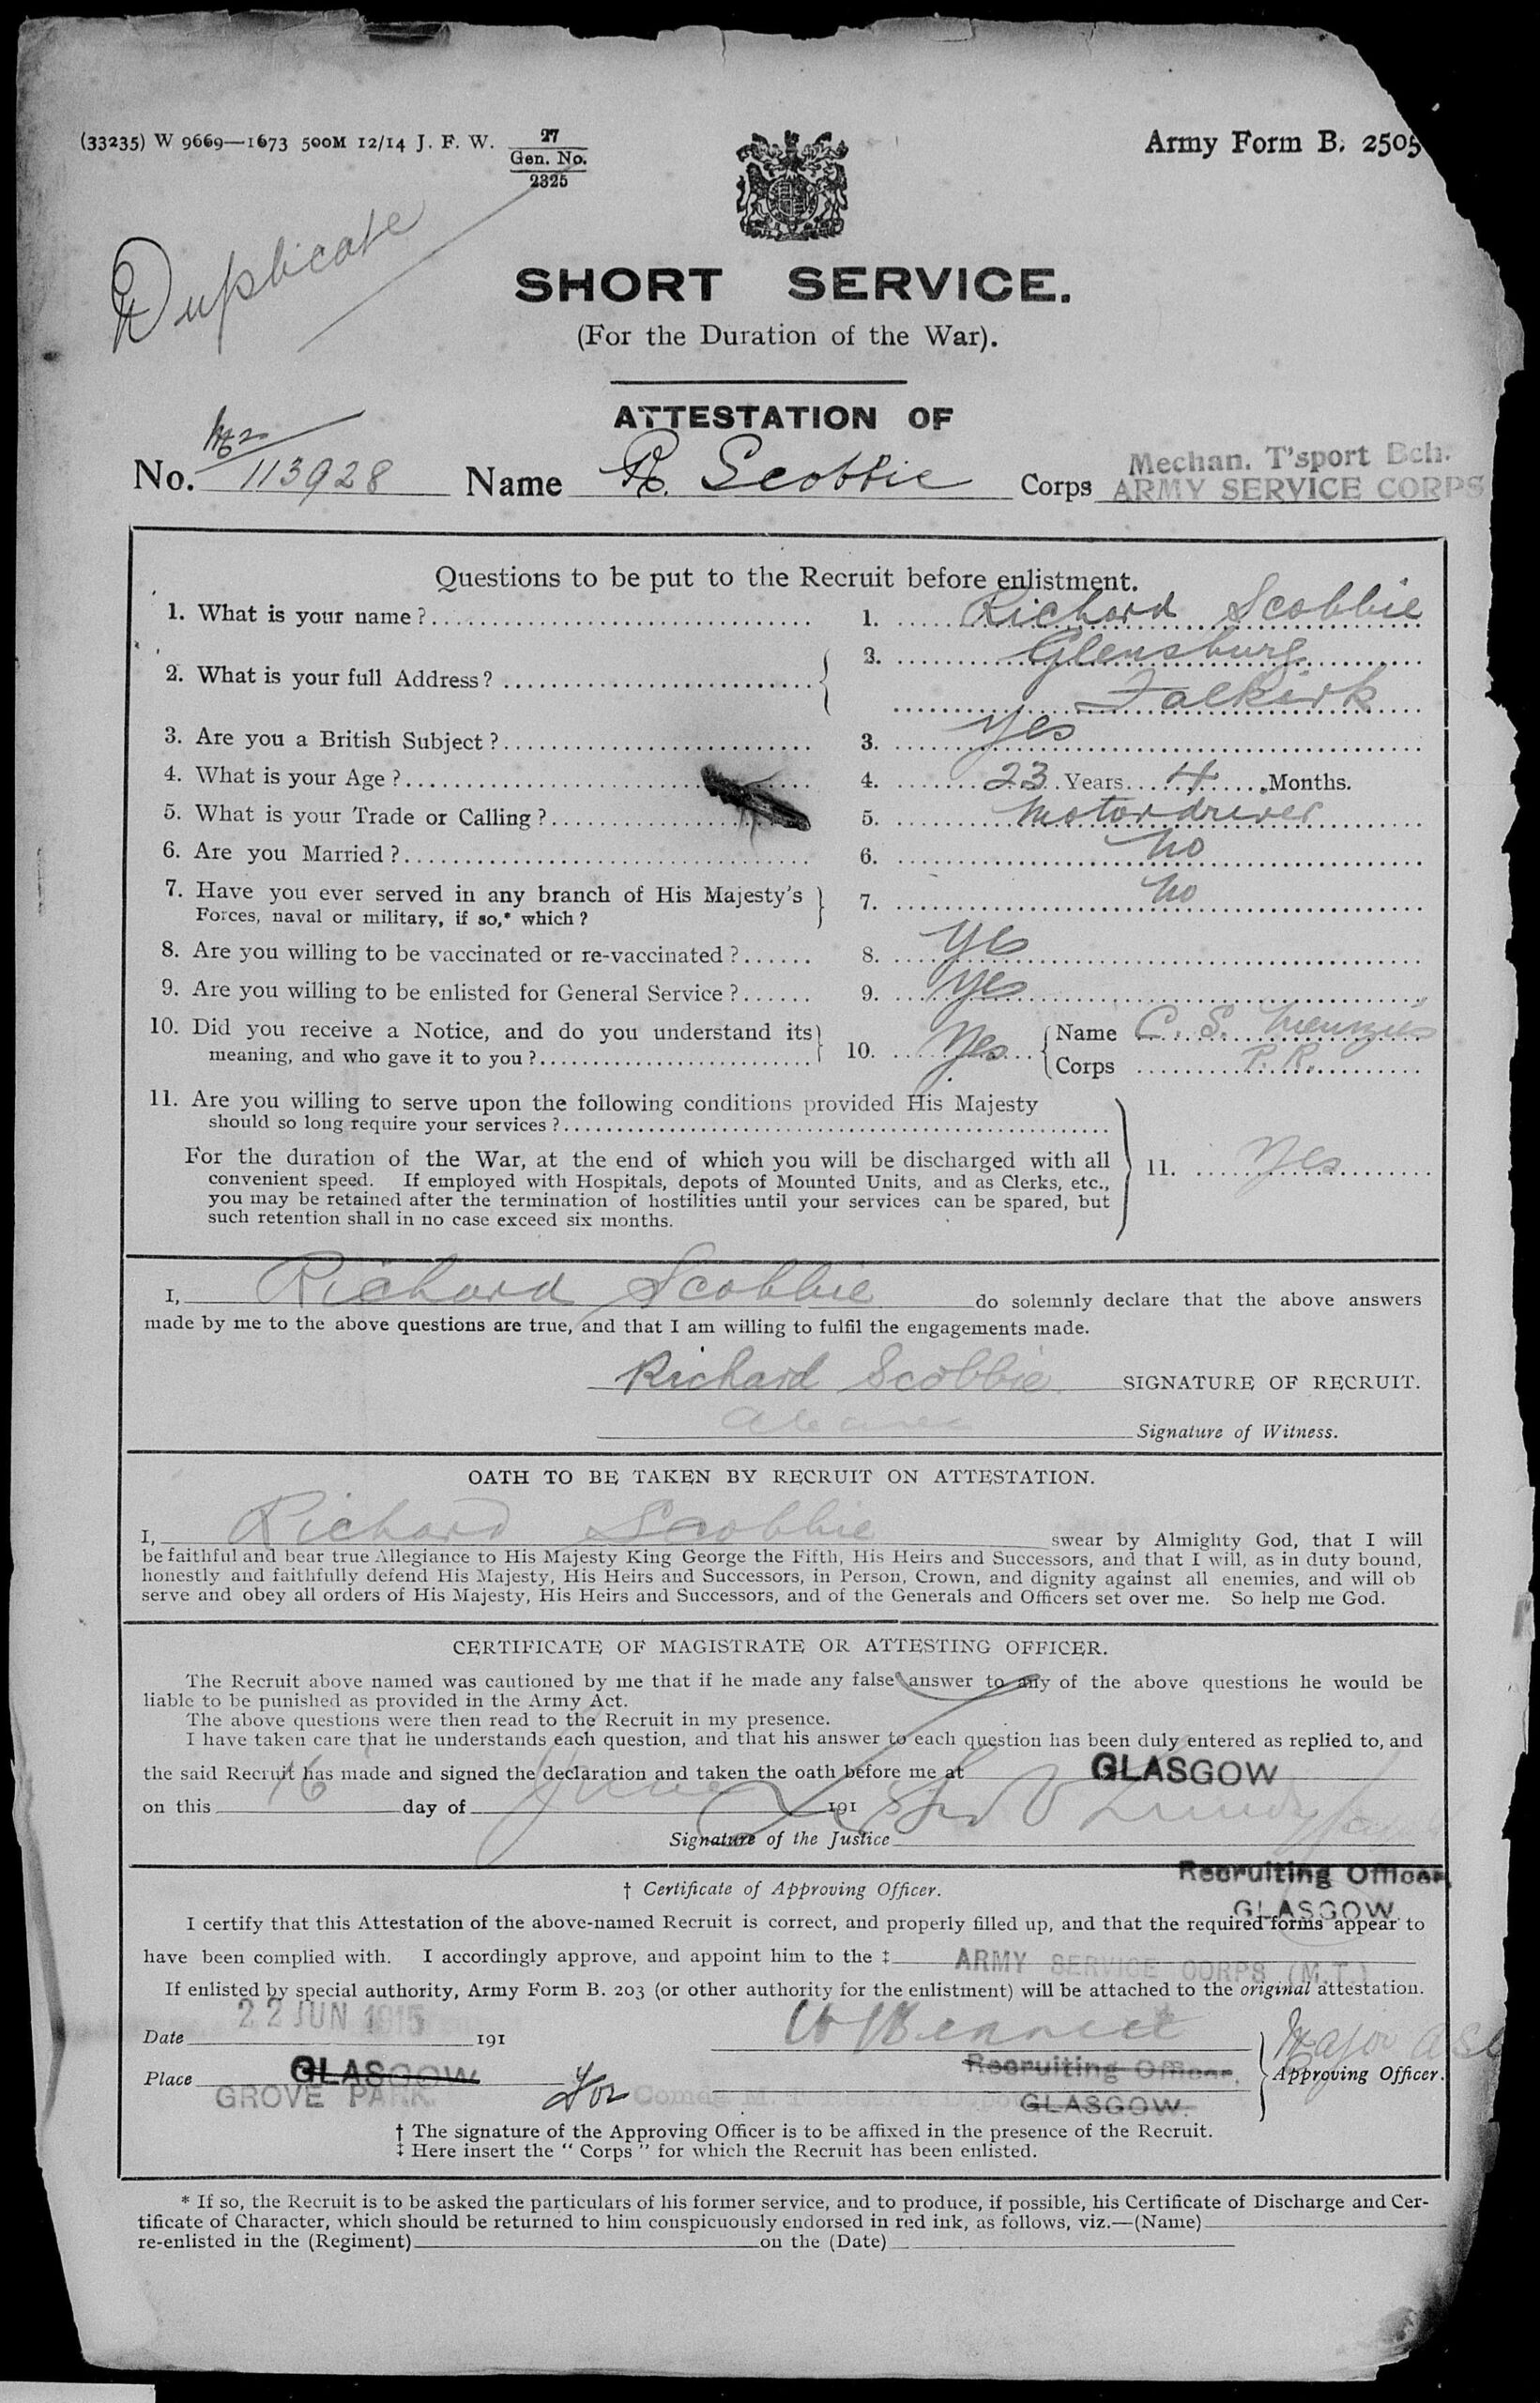 (33235) W 9669—1673 500M 12/14 J. F. W. 27
Gen. No.
2325
Army Form B. 2505
Duplicate
SHORT SERVICE.
(For the Duration of the War).
ATTESTATION OF
M2
No. 113928 Name R. Scobbie Corps Mechan. T'sport Bch.
ARMY SERVICE CORPS
Questions to be put to the Recruit before enlistment.
1. What is your name? 1. Richard Scobbie
2. What is your full Address? 2. Glensburg
Falkirk
3. Are you a British Subject? 3. Yes
4. What is your Age? 4. 23 Years 4 Months.
5. What is your Trade or Calling? 5. Motordriver
6. Are you Married? 6. No
7. Have you ever served in any branch of His Majesty's 7. No
Forces, naval or military, if so,* which?
8. Are you willing to be vaccinated or re-vaccinated? 8. Yes
9. Are you willing to be enlisted for General Service? 9. Yes
10. Did you receive a Notice, and do you understand its 10. Yes Name C. S. Menzies
meaning, and who gave it to you? Corps P. R.
11. Are you willing to serve upon the following conditions provided His Majesty
should so long require your services?
For the duration of the War, at the end of which you will be discharged with all 11. Yes
convenient speed. If employed with Hospitals, depots of Mounted Units, and as Clerks, etc.,
you may be retained after the termination of hostilities until your services can be spared, but
such retention shall in no case exceed six months.
I, Richard Scobbie do solemnly declare that the above answers
made by me to the above questions are true, and that I am willing to fulfil the engagements made.
Richard Scobbie SIGNATURE OF RECRUIT.
Signature of Witness.
OATH TO BE TAKEN BY RECRUIT ON ATTESTATION.
I, Richard Scobbie swear by Almighty God, that I will
be faithful and bear true Allegiance to His Majesty King George the Fifth, His Heirs and Successors, and that I will, as in duty bound,
honestly and faithfully defend His Majesty, His Heirs and Successors, in Person, Crown, and dignity against all enemies, and will ob
serve and obey all orders of His Majesty, His Heirs and Successors, and of the Generals and Officers set over me. So help me God.
CERTIFICATE OF MAGISTRATE OR ATTESTING OFFICER.
The Recruit above named was cautioned by me that if he made any false answer to any of the above questions he would be
liable to be punished as provided in the Army Act.
The above questions were then read to the Recruit in my presence.
I have taken care that he understands each question, and that his answer to each question has been duly entered as replied to, and
the said Recruit has made and signed the declaration and taken the oath before me at GLASGOW
on this 16 day of June 191
Signature of the Justice
Recruiting Officer,
GLASGOW.
† Certificate of Approving Officer.
I certify that this Attestation of the above-named Recruit is correct, and properly filled up, and that the required forms appear to
have been complied with. I accordingly approve, and appoint him to the ‡ ARMY SERVICE CORPS (M.T.)
If enlisted by special authority, Army Form B. 203 (or other authority for the enlistment) will be attached to the original attestation.
Date 22 JUN 1915 191 Major ASC
Place GLASGOW Recruiting Officer, Approving Officer.
GROVE PARK For GLASGOW.
† The signature of the Approving Officer is to be affixed in the presence of the Recruit.
‡ Here insert the "Corps" for which the Recruit has been enlisted.
* If so, the Recruit is to be asked the particulars of his former service, and to produce, if possible, his Certificate of Discharge and Cer-
tificate of Character, which should be returned to him conspicuously endorsed in red ink, as follows, viz.—(Name)
re-enlisted in the (Regiment) on the (Date)